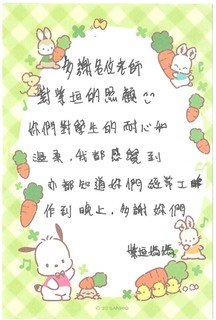 多謝各位老師
對學垣的照顧
你們對學生的耐心如
溫柔，我都感覺到
亦都知道你們經常工
作到晚上，多謝你們
媽媽
© 20 SANRIO